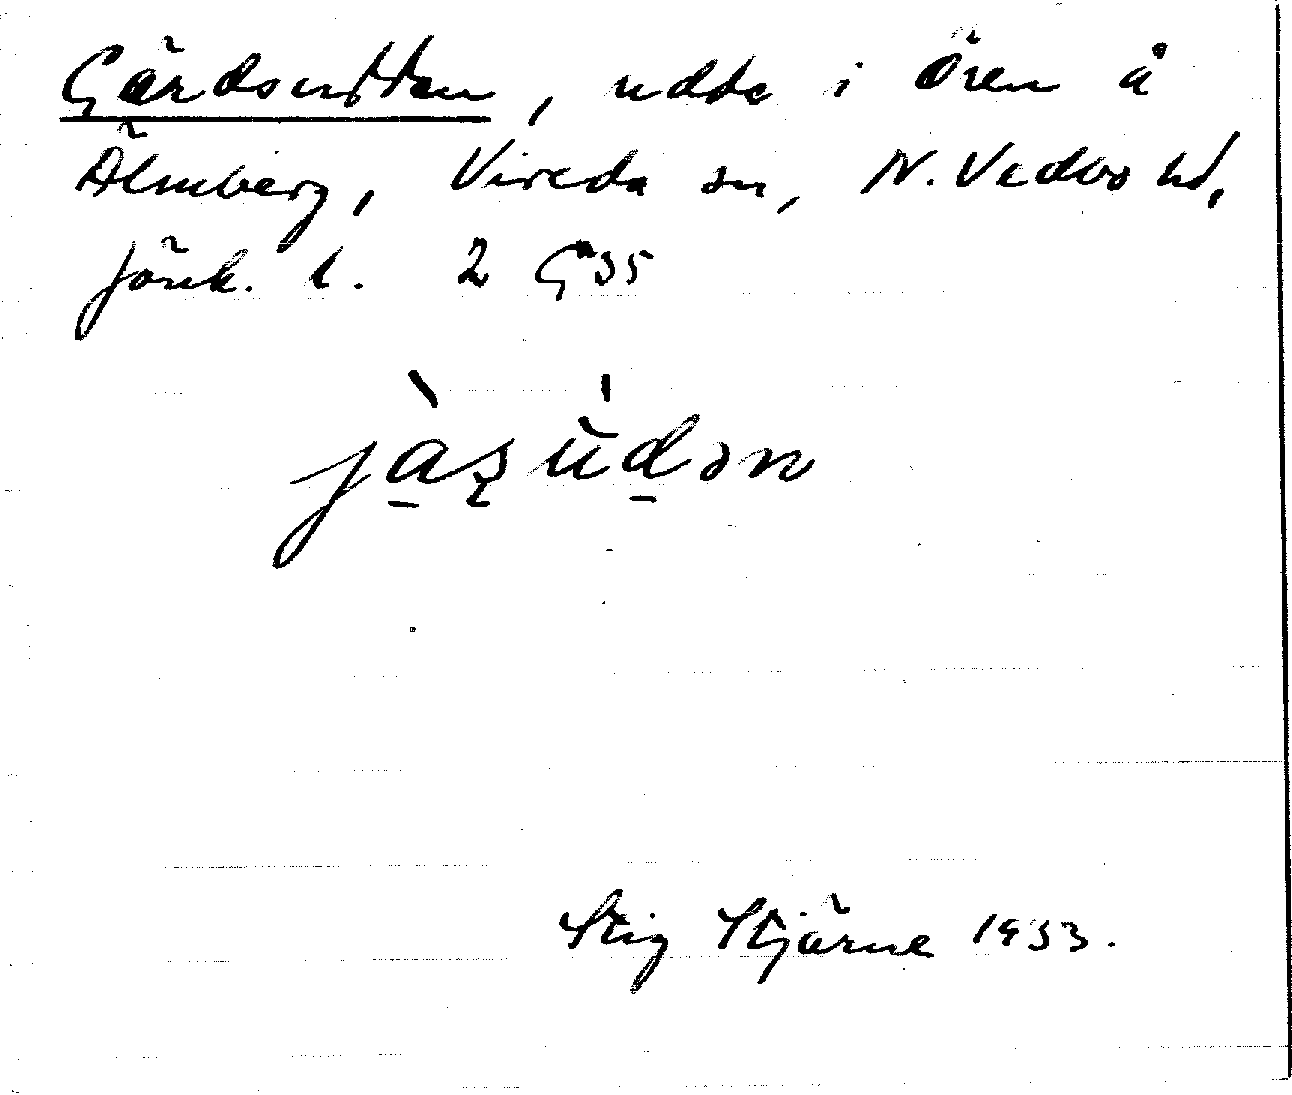 Gärdsudden, udde i Ören å
Älmberg, Vireda sn, N. Vedbo hd,
Jönk. l. 2 G 35
Stig Stjärne 1933.